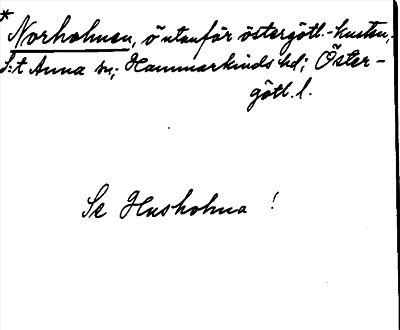 *
Norholmen, ö utanför östergötl.-kusten,
S:t Anna sn; Hammarkinds hd; Öster-
götl. l.
Se Husholma !